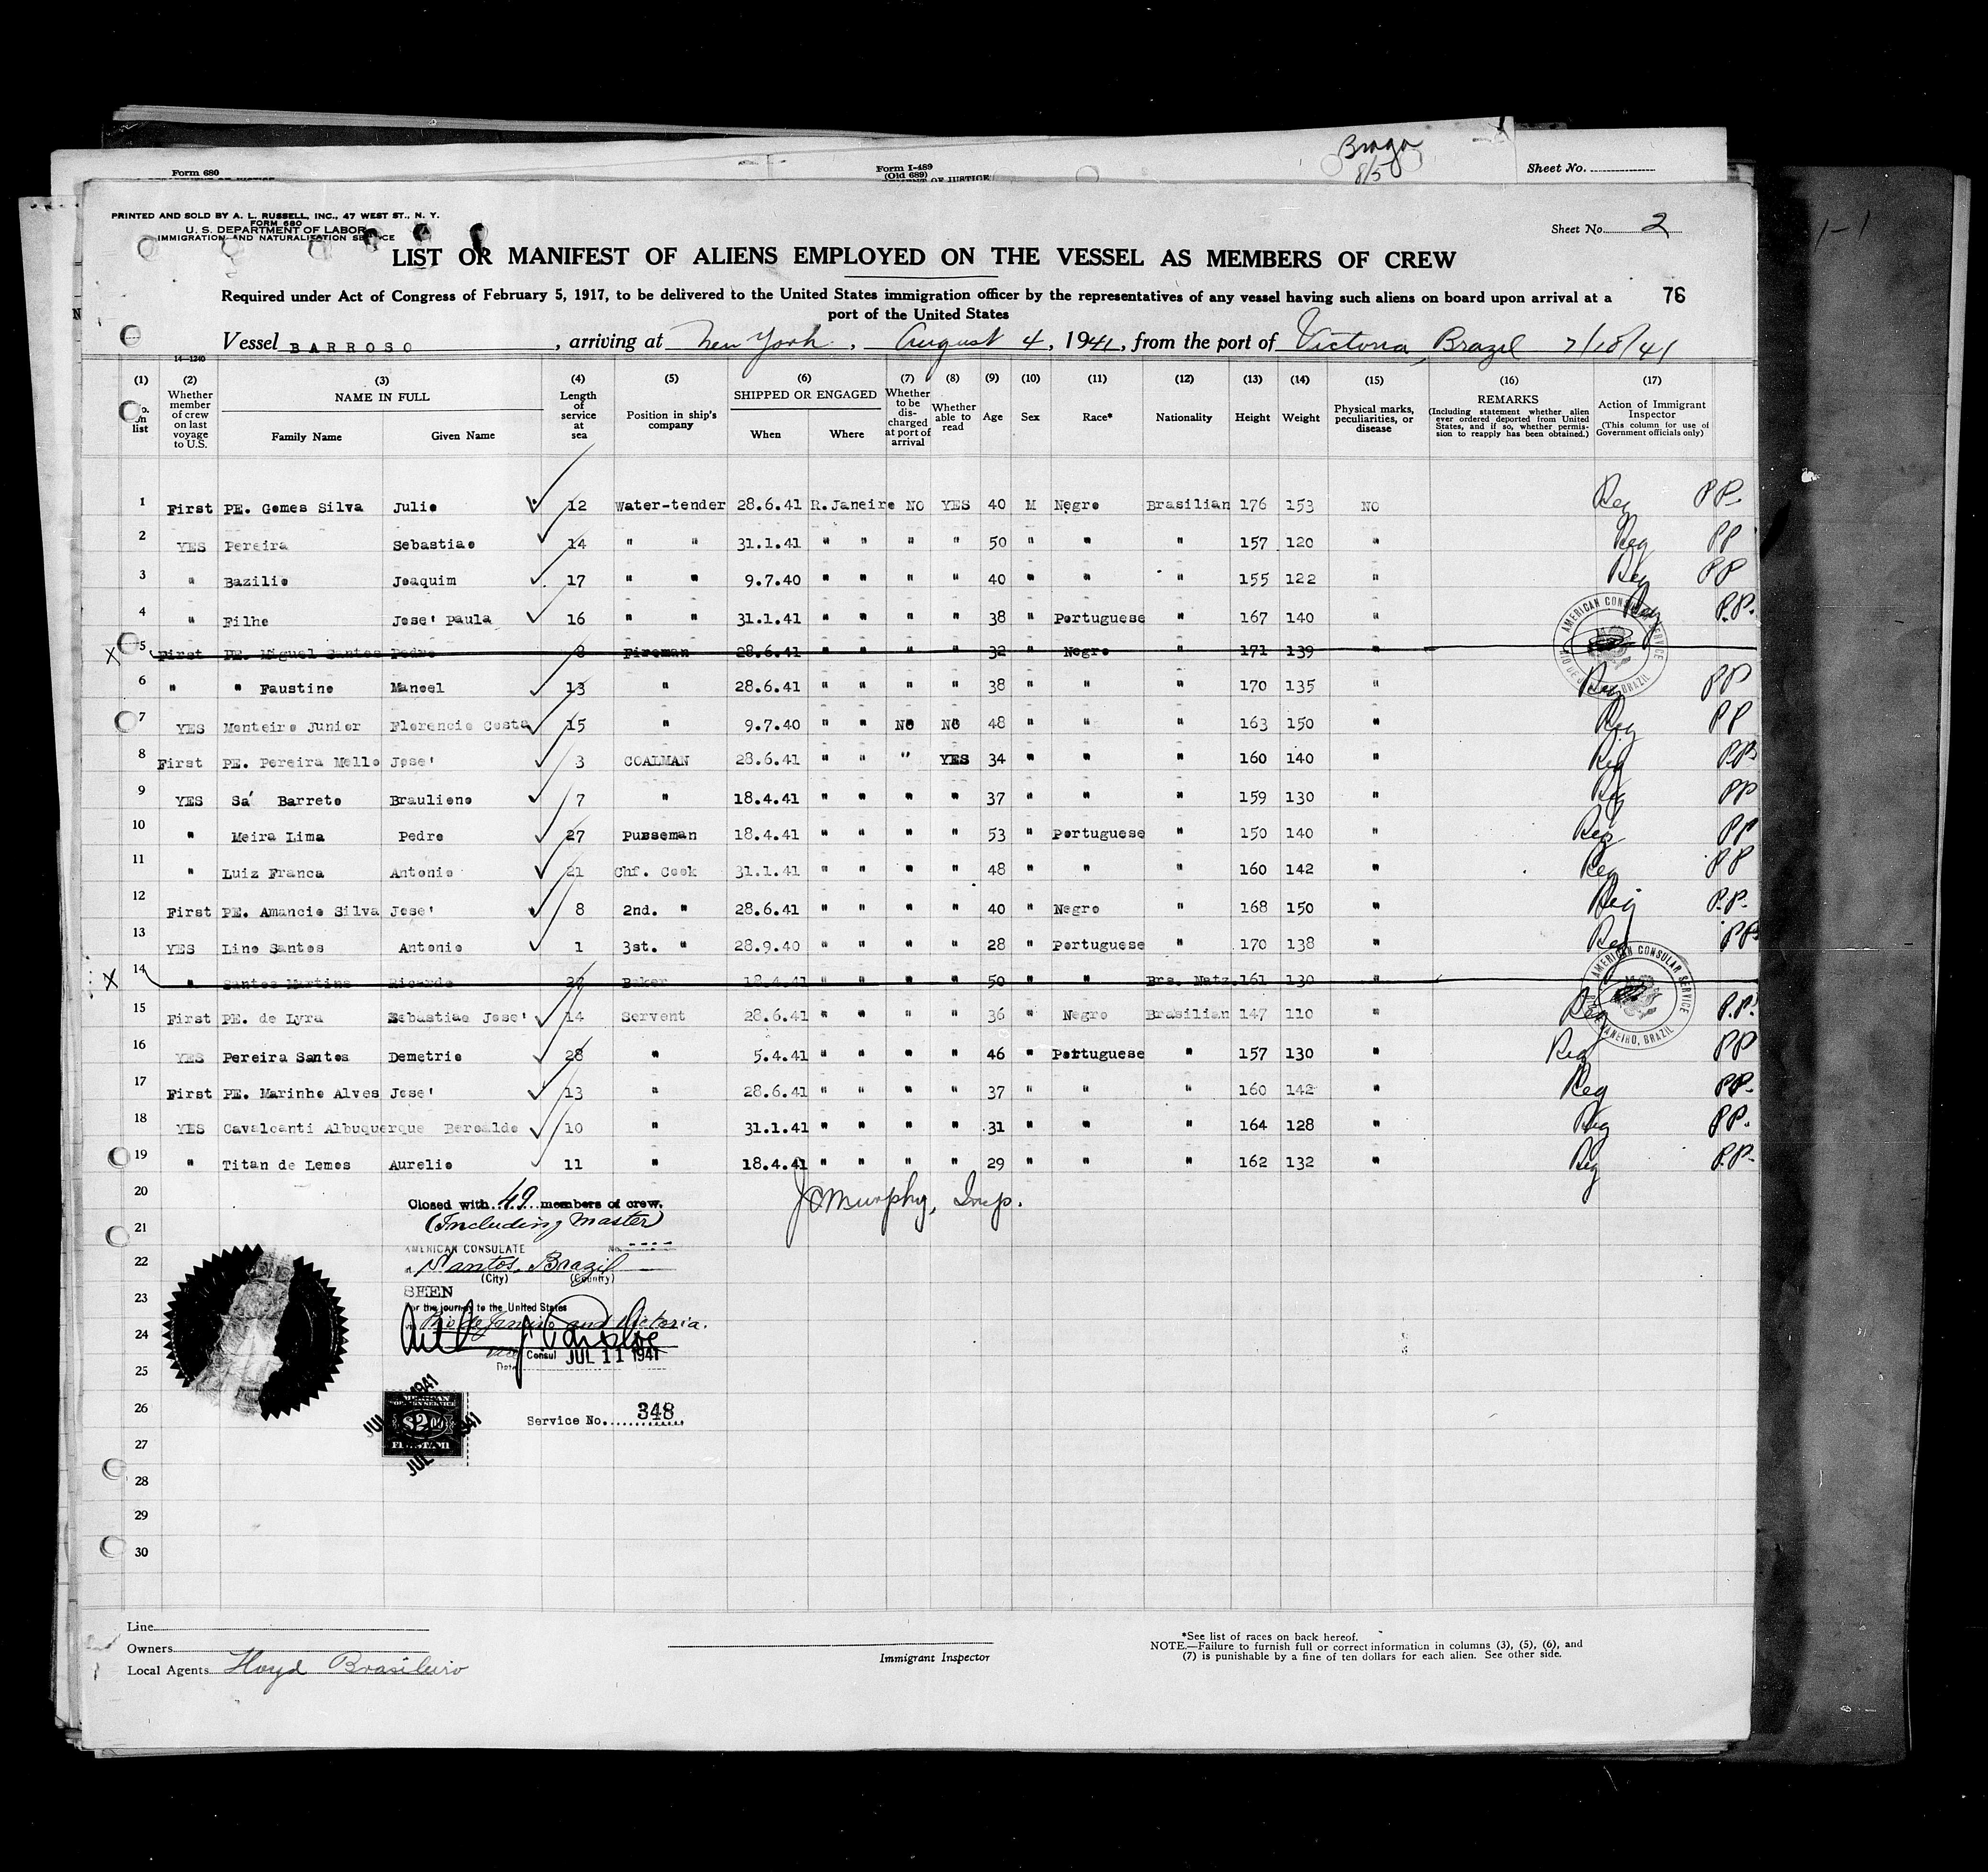 Braga
8/5
Form 680
Form I-489
(Old 689)
Sheet No.
PRINTED AND SOLD BY A. L. RUSSELL, INC., 47 WEST ST., N. Y.
FORM 680
U. S. DEPARTMENT OF LABOR
IMMIGRATION AND NATURALIZATION SERVICE
Sheet No. 2
LIST OR MANIFEST OF ALIENS EMPLOYED ON THE VESSEL AS MEMBERS OF CREW
Required under Act of Congress of February 5, 1917, to be delivered to the United States immigration officer by the representatives of any vessel having such aliens on board upon arrival at a
port of the United States
76
Vessel BARROSO, arriving at New York, August 4, 1941, from the port of Victoria, Brazil 7/18/41
14—1240
(1) (2) (3) (4) (5) (6) (7) (8) (9) (10) (11) (12) (13) (14) (15) (16) (17)
No. on list
Whether member of crew on last voyage to U.S.
NAME IN FULL
Family Name Given Name
Length of service at sea
Position in ship's company
SHIPPED OR ENGAGED
When Where
Whether to be discharged at port of arrival
Whether able to read
Age
Sex
Race*
Nationality
Height
Weight
Physical marks, peculiarities, or disease
REMARKS
(Including statement whether alien ever ordered deported from United States, and if so, whether permission to reapply has been obtained.)
Action of Immigrant Inspector
(This column for use of Government officials only)
1 First PE. Gomes Silva Julio 12 Water-tender 28.6.41 R.Janeiro NO YES 40 M Negro Brasilian 176 153 NO Reg PP.
2 YES Pereira Sebastiao 14 " " 31.1.41 " " " " 50 " " " 157 120 " Reg PP
3 " Bazilio Joaquim 17 " " 9.7.40 " " " " 40 " " " 155 122 " Reg PP
4 " Filho Jose' Paula 16 " " 31.1.41 " " " " 38 " Portuguese " 167 140 " Reg P.P.
X 5 First PE. Miguel Santos Pedro 8 Fireman 28.6.41 " " " " 32 " Negro " 171 139 "
6 " " Faustino Manoel 13 " 28.6.41 " " " " 38 " " " 170 135 " Reg PP
7 YES Monteiro Junior Florencio Costa 15 " 9.7.40 " " NO NO 48 " " " 163 150 " Reg PP
8 First PE. Pereira Mello Jose' 3 COALMAN 28.6.41 " " " YES 34 " " " 160 140 " Reg PP
9 YES Sá Barreto Brauliono 7 " 18.4.41 " " " " 37 " " " 159 130 " Reg PP
10 " Meira Lima Pedro 27 Pusseman 18.4.41 " " " " 53 " Portuguese " 150 140 " Reg PP
11 " Luiz Franca Antonio 21 Chf. Cook 31.1.41 " " " " 48 " " " 160 142 " Reg PP
12 First PE. Amancio Silva Jose' 8 2nd. " 28.6.41 " " " " 40 " Negro " 168 150 " Reg P.P.
13 YES Lino Santos Antonio 1 3st. " 28.9.40 " " " " 28 " Portuguese " 170 138 " Reg PP
X 14 " Santos Martins Ricardo 27 Baker 18.4.41 " " " " 50 " " Brs. Natz. 161 130 "
15 First PE. de Lyra Sebastiao Jose' 14 Servent 28.6.41 " " " " 36 " Negro Brasilian 147 110 " Reg P.P.
16 YES Pereira Santos Demetrio 28 " 5.4.41 " " " " 46 " Portuguese " 157 130 " Reg PP
17 First PE. Marinho Alves Jose' 13 " 28.6.41 " " " " 37 " " " 160 142 " Reg PP.
18 YES Cavalcanti Albuquerque Beroaldo 10 " 31.1.41 " " " " 31 " " " 164 128 " Reg PP.
19 " Titan de Lemos Aurelio 11 " 18.4.41 " " " " 29 " " " 162 132 " Reg P.P.
AMERICAN CONSULAR SERVICE
RIO DE JANEIRO, BRAZIL
AMERICAN CONSULAR SERVICE
RIO DE JANEIRO, BRAZIL
20
Closed with 49 members of crew.
(Including Master)
JC Murphy, Insp.
21
AMERICAN CONSULATE No. ----
22
at Santos, Brazil
(City) (Country)
23
SEEN
For the journey to the United States
via Rio de Janeiro and Victoria.
24
Vice Consul
Date JUL 11 1941
25
26
Service No. 348
$2.00
27
28
29
30
Line
Owners
Local Agents Lloyd Brasileiro
Immigrant Inspector
*See list of races on back hereof.
NOTE.—Failure to furnish full or correct information in columns (3), (5), (6), and
(7) is punishable by a fine of ten dollars for each alien. See other side.